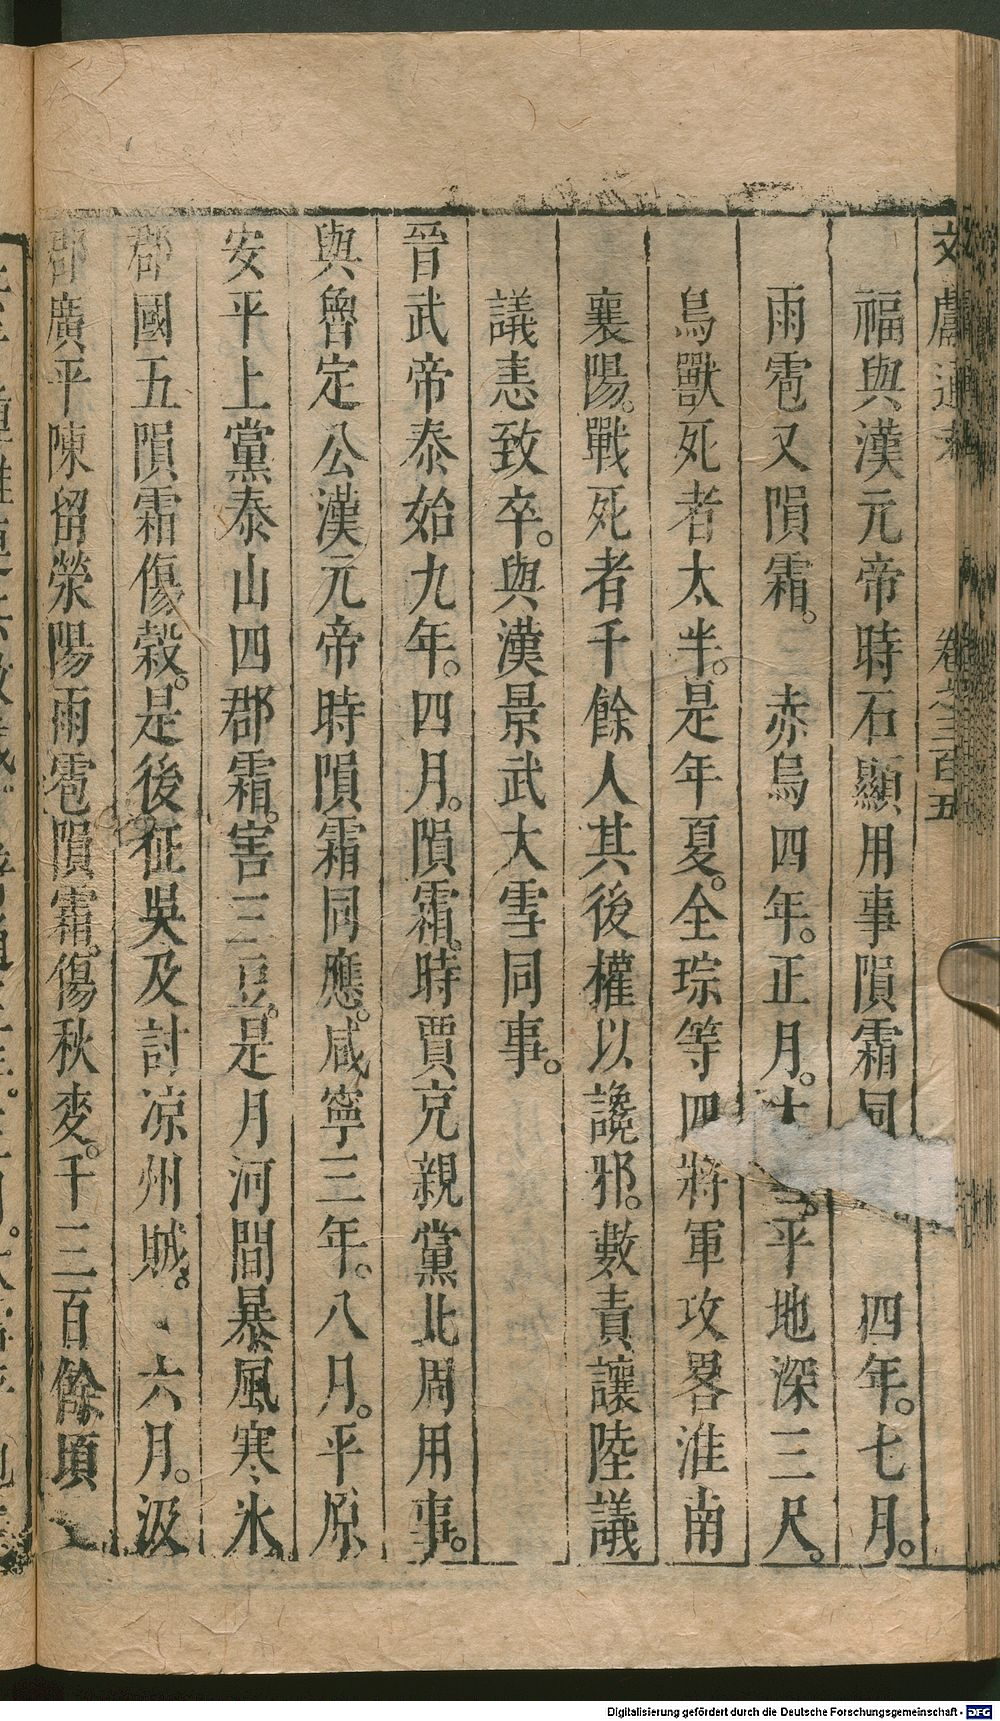 文獻通考　卷之三百五
福與漢元帝時石顯用事隕霜同　四年。七月。
雨雹又隕霜。　赤烏四年。正月。大　平地深三尺。
鳥獸死者太半。是年夏。全琮等四將軍攻畧淮南
襄陽。戰死者千餘人其後權以讒邪。數責讓陸議
議恚致卒。與漢景武大雪同事。
晉武帝泰始九年。四月。隕霜。時賈充親黨北周用事。
與魯定公漢元帝時隕霜同應。咸寧三年。八月。平原
安平上黨泰山四郡霜。害三豆。是月河間暴風寒冰
郡國五隕霜傷穀。是後征吳及討凉州賊。六月。汲
郡廣平陳留滎陽雨雹隕霜。傷秋麥。千三百餘頃
Digitalisierung gefördert durch die Deutsche Forschungsgemeinschaft - DFG